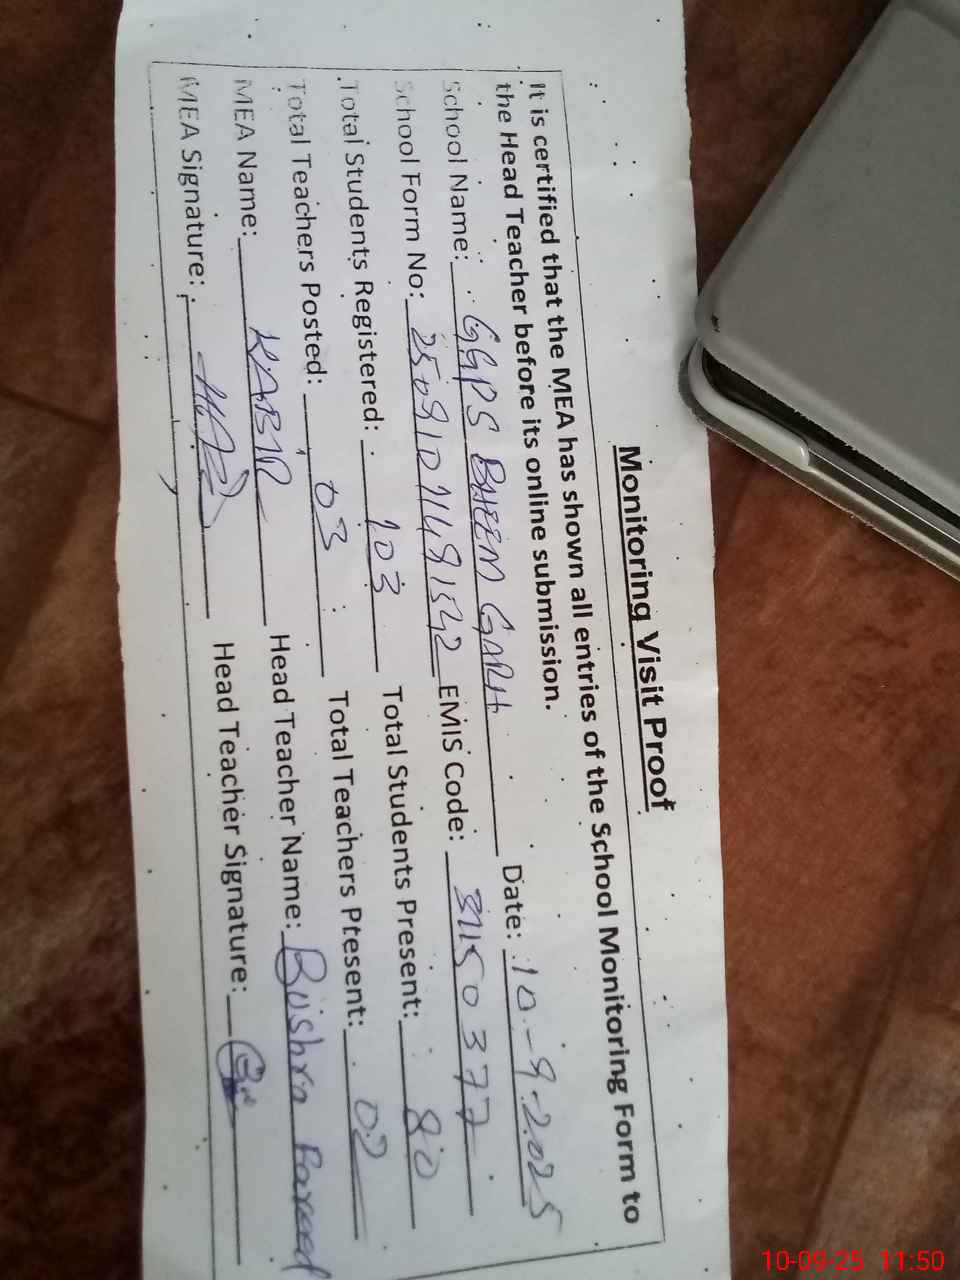 Monitoring Visit Proof
It is certified that the MEA has shown all entries of the School Monitoring Form to
the Head Teacher before its online submission.
School Name: GGPS BHEEM GARH Date: 10-9-2025
School Form No: EMIS Code: 31150377
Total Students Registered: 103 Total Students Present: 80
Total Teachers Posted: 03 Total Teachers Present: 02
MEA Name: KABIR Head Teacher Name: Bushra Fareed
MEA Signature: Head Teacher Signature:
10-09-25 11:50